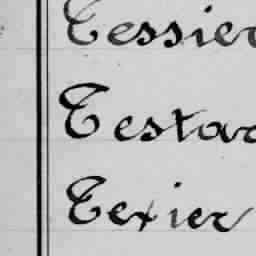 Tessier
Testar
Texier